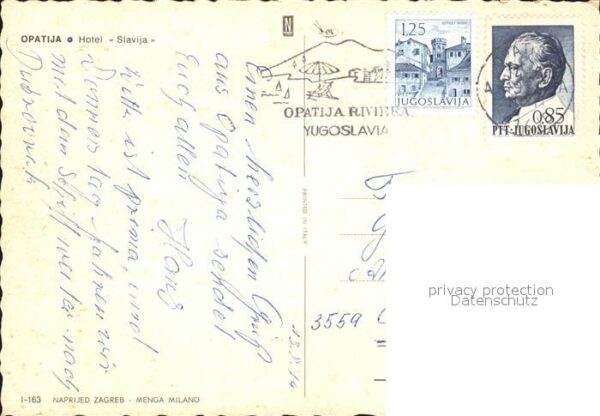 OPATIJA • Hotel «Slavija»
N
OPATIJA RIVIERA
YUGOSLAVIA
1.25
JUGOSLAVIJA
0.85
PTT-JUGOSLAVIJA
Einen herzlichen Gruß
aus Opatija sendet
Euch allen
Hans
Hitze ist prima, und
Donnerstag fahren wir
mit dem Schiff weiter nach
Dubrovnik
13.8.74
PRINTED IN ITALY
3559
privacy protection
Datenschutz
I-163 NAPRIJED ZAGREB - MENGA MILANO